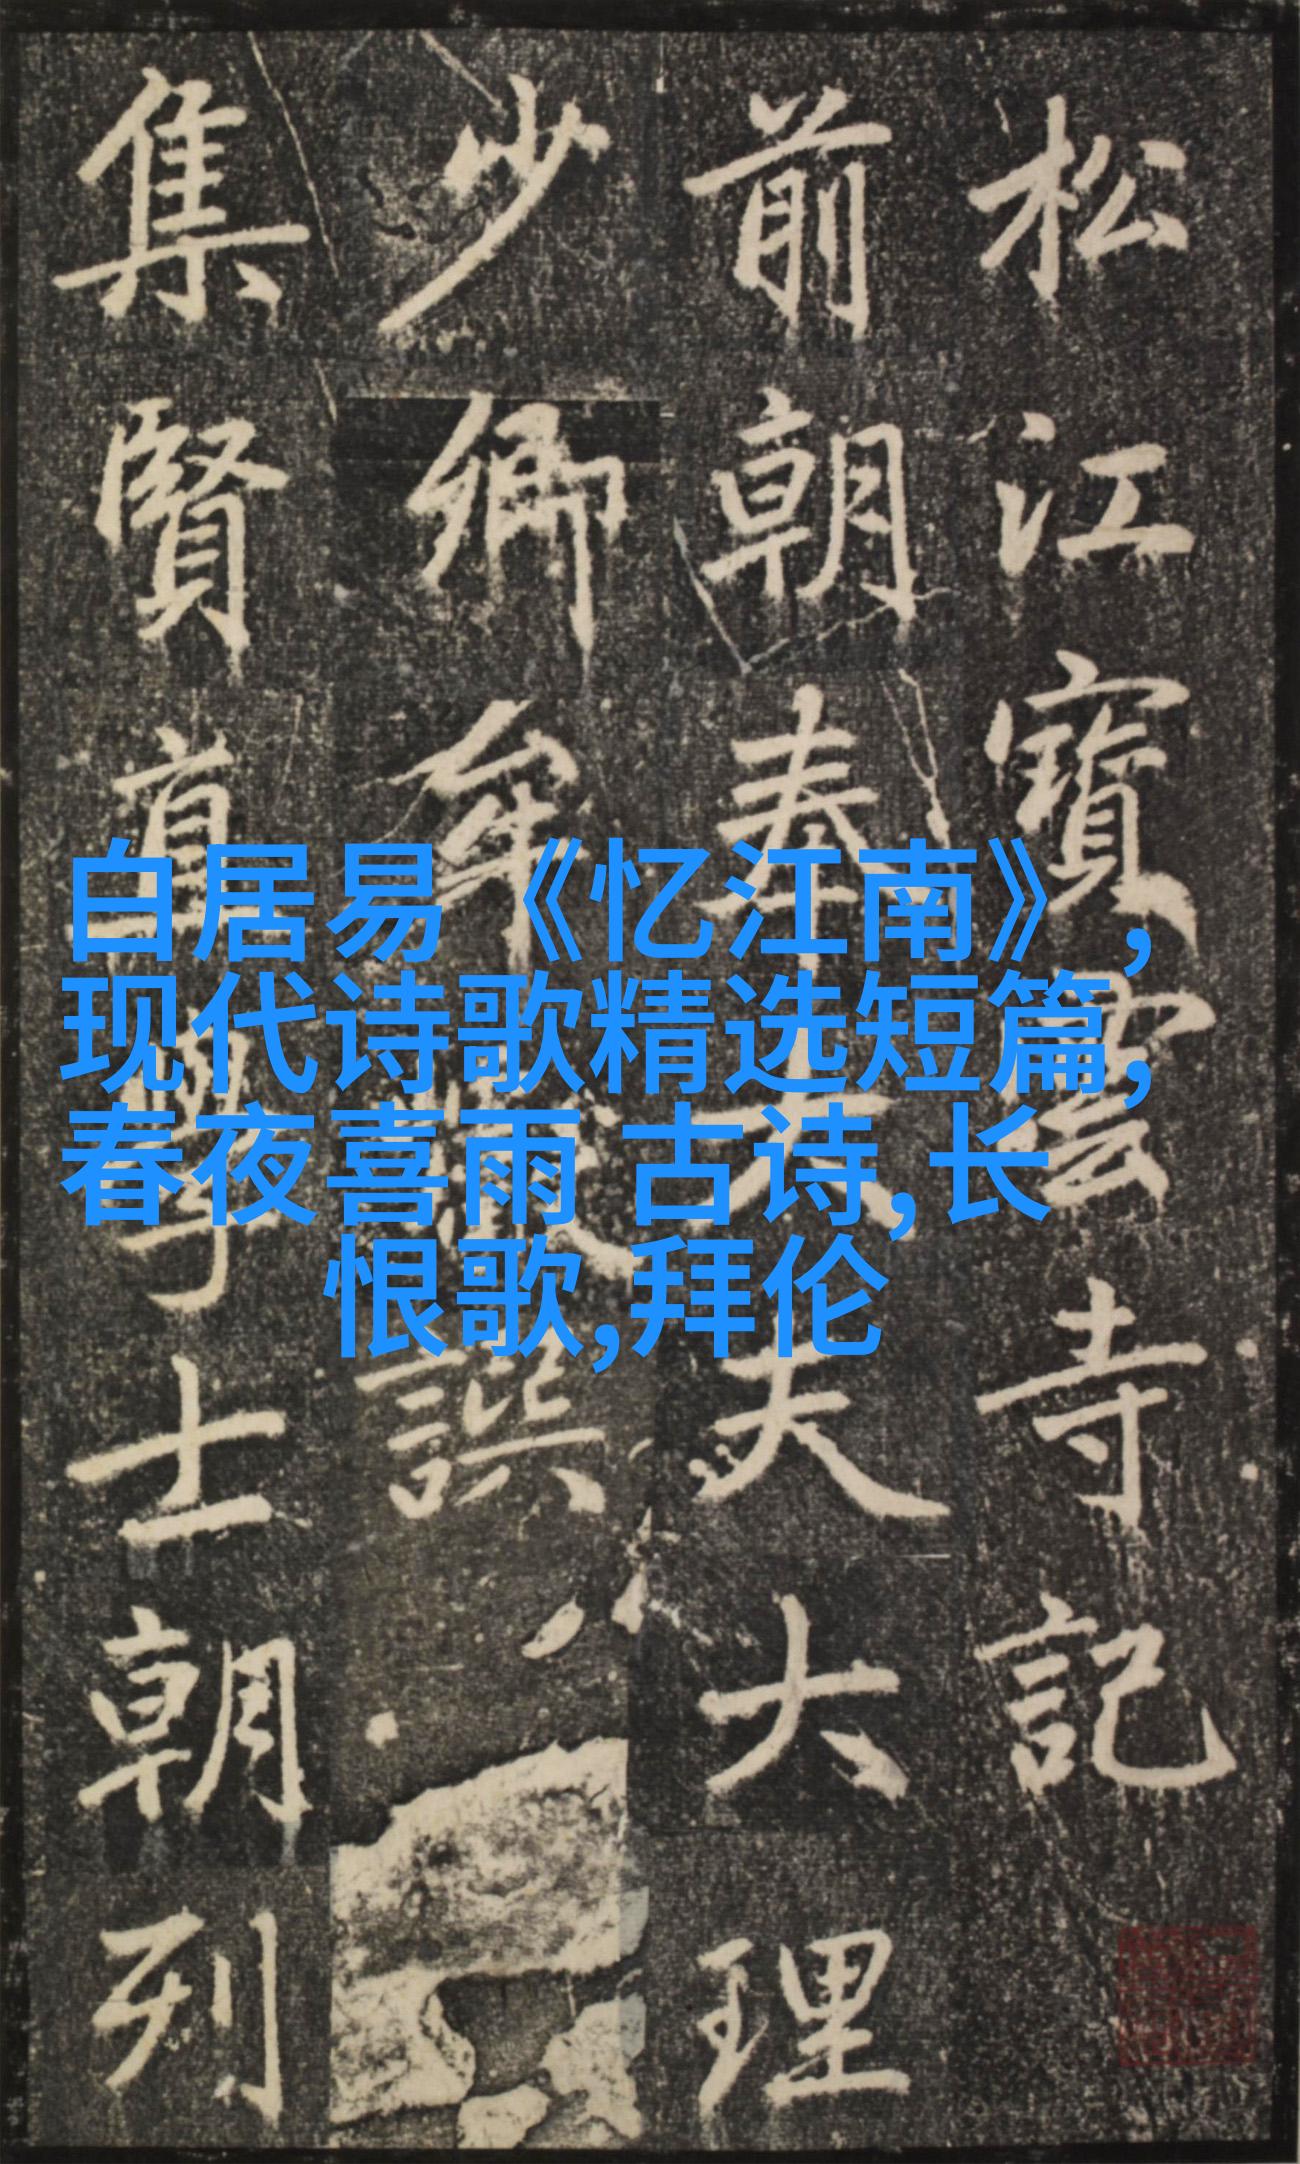 松江寶雲寺記
前朝奉大夫大理
少卿牟譔
集賢直學士朝列
白居易《忆江南》,
现代诗歌精选短篇,
春夜喜雨 古诗,长
恨歌,拜伦